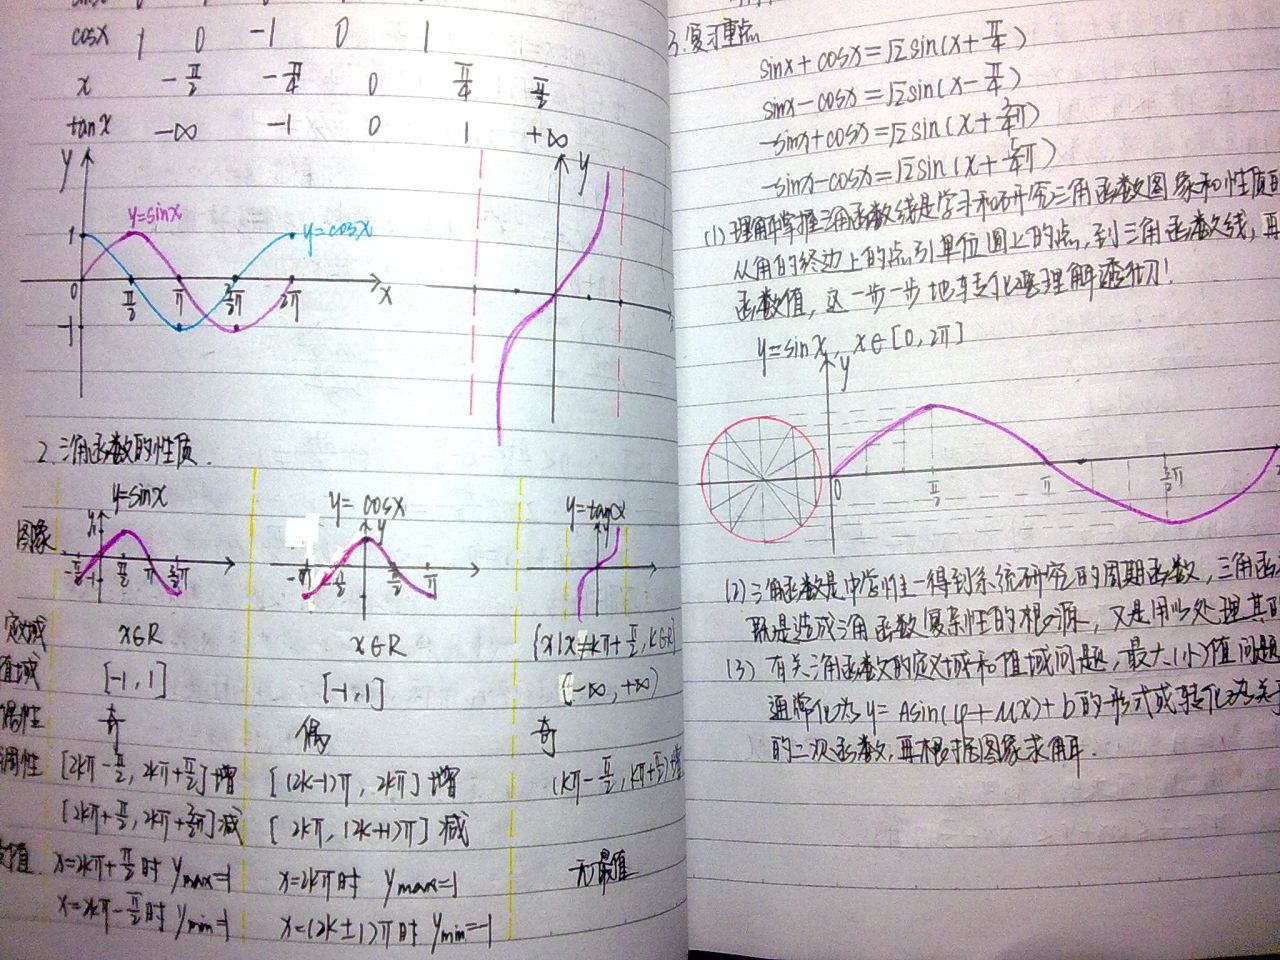 cosx 1 0 -1 0 1
x -π/2 -π/4 0 π/4 π/2
tanx -∞ -1 0 1 +∞
y
y=sinx
y=cosx
1
0 π/2 π 3/2π 2π x
-1
y
2.三角函数的性质.
y=sinx y=cosx y=tanx
图象
y y y
-π/2 π/2 π 3/2π
-1
-π -π/2 π/2 π
定义域 x∈R x∈R {x|x≠kπ+π/2,k∈R}
值域 [-1,1] [-1,1] (-∞,+∞)
偶性 奇 偶 奇
调性 [2kπ-π/2,2kπ+π/2]增 [(2k-1)π,2kπ]增 (kπ-π/2,kπ+π/2)增
[2kπ+π/2,2kπ+3/2π]减 [2kπ,(2k+1)π]减
值 x=2kπ+π/2时 ymax=1 x=2kπ时 ymax=1 无最值
x=2kπ-π/2时 ymin=-1 x=(2k±1)π时 ymin=-1
3.复习重点
sinx+cosx=√2sin(x+π/4)
sinx-cosx=√2sin(x-π/4)
-sinx+cosx=√2sin(x+3/4π)
-sinx-cosx=√2sin(x+5/4π)
(1)理解中掌握三角函数线是学习和研究三角函数图象和性质的
从角的终边上的点引单位圆上的点,到三角函数线,再
函数值,这一步一步地转化要理解透彻!
y=sinx, x∈[0,2π]
y
0 π/2 π 3/2π
(2)三角函数是中学唯一得到系统研究的周期函数,三角函
既是造成三角函数复杂性的根源,又是用以处理其
(3)有关三角函数的定义域和值域问题,最大(小)值问题
通常化为y=Asin(φ+ωx)+b的形式或转化为关于
的二次函数,再根据图象求解.